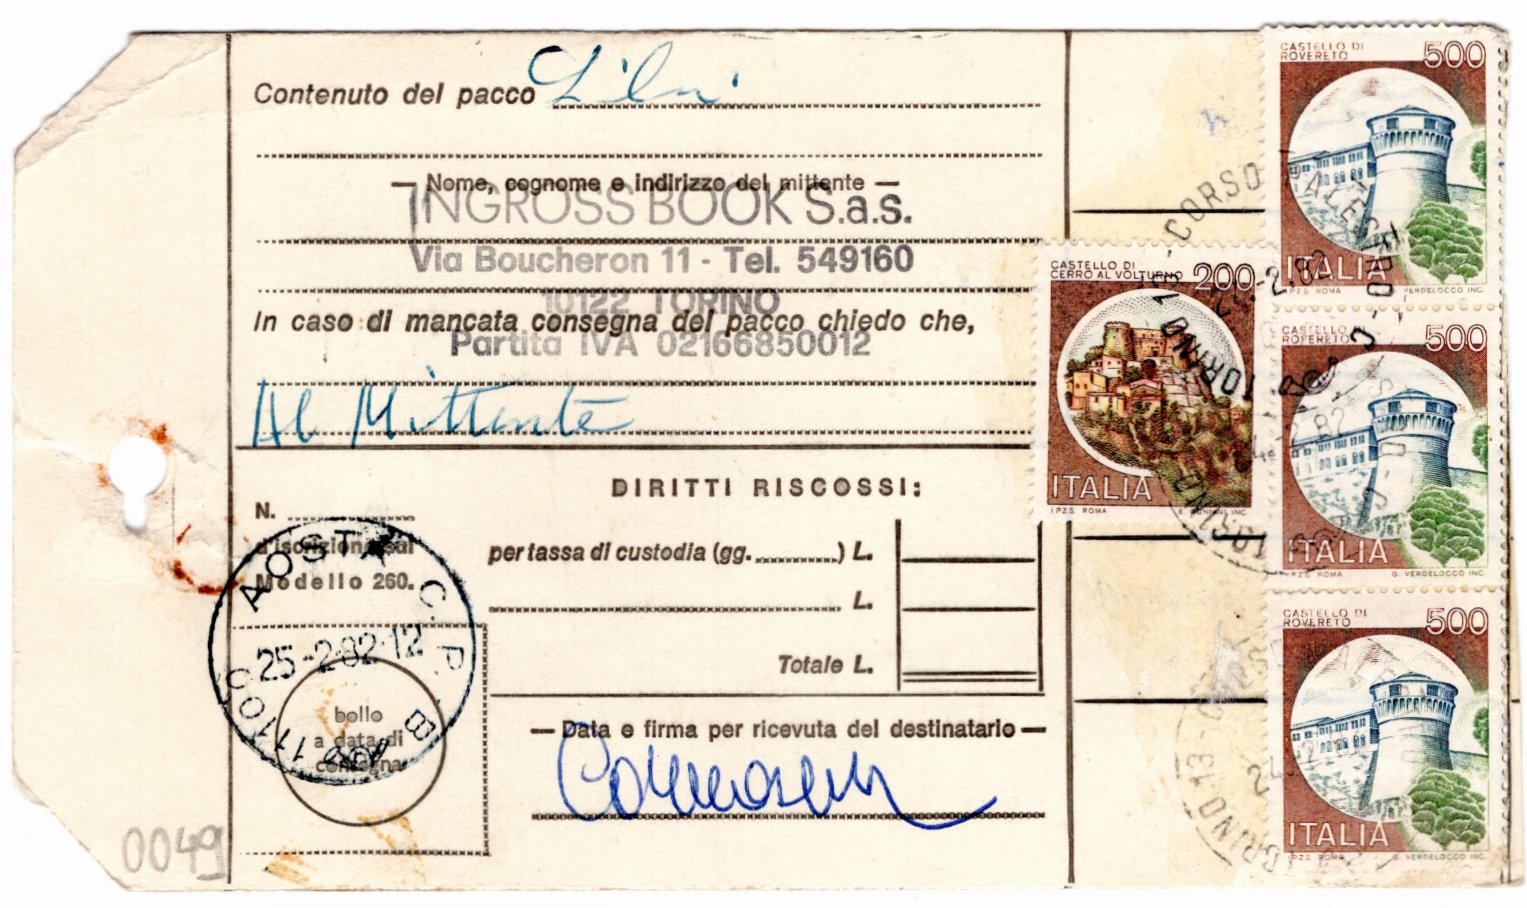 Contenuto del pacco Libri
— Nome, cognome e indirizzo del mittente —
INGROSS BOOK S.a.s.
Via Boucheron 11 - Tel. 549160
10122 TORINO
In caso di mancata consegna del pacco chiedo che,
Partita IVA 02166850012
Al Mittente
DIRITTI RISCOSSI:
N.
d'iscrizione sul
Modello 260.
per tassa di custodia (gg. ) L.
L.
Totale L.
AOSTA C.P.
25-2-82-12
11100
bollo
a data di
consegna
— Data e firma per ricevuta del destinatario —
0049
CASTELLO DI
CERRO AL VOLTURNO 200
ITALIA
I.P.Z.S. ROMA
CASTELLO DI
ROVERETO 500
ITALIA
I.P.Z.S. ROMA G. VERDELOCCO INC.
CASTELLO DI
ROVERETO 500
ITALIA
I.P.Z.S. ROMA G. VERDELOCCO INC.
CASTELLO DI
ROVERETO 500
ITALIA
I.P.Z.S. ROMA G. VERDELOCCO INC.
CORSO PALESTRO
TORINO